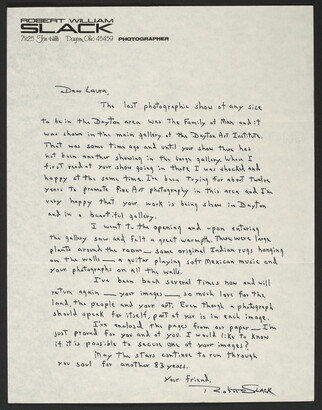 ROBERT WILLIAM
SLACK
7825 Fox Hills Dayton, Ohio 45459 PHOTOGRAPHER
Dear Laura,
The last photographic show of any size
to be in the Dayton area was The Family of Man and it
was shown in the main gallery of the Dayton Art Institute.
That was some time ago and until your show there has
not been another showing in the large gallery. When I
first read of your show going in there I was shocked and
happy at the same time. I've been trying for about twelve
years to promote fine Art photography in this area and I'm
very happy that your work is being shown in Dayton
and in a beautiful gallery.
I went to the opening and upon entering
the gallery saw and felt a great warmth. There were large
plants around the room — some original Indian rugs hanging
on the walls — a guitar playing soft Mexican music and
your photographs on all the walls.
I've been back several times now and will
return again — your images — so much love for the
land, the people and your art. Even though a photograph
should speak for itself, part of you is in each image.
I've enclosed the pages from our paper — I'm
just proud for you and of you. I would like to know
if it is possible to secure one of your images?
May the stars continue to run through
you soul for another 83 years.
Your friend,
Robert Slack